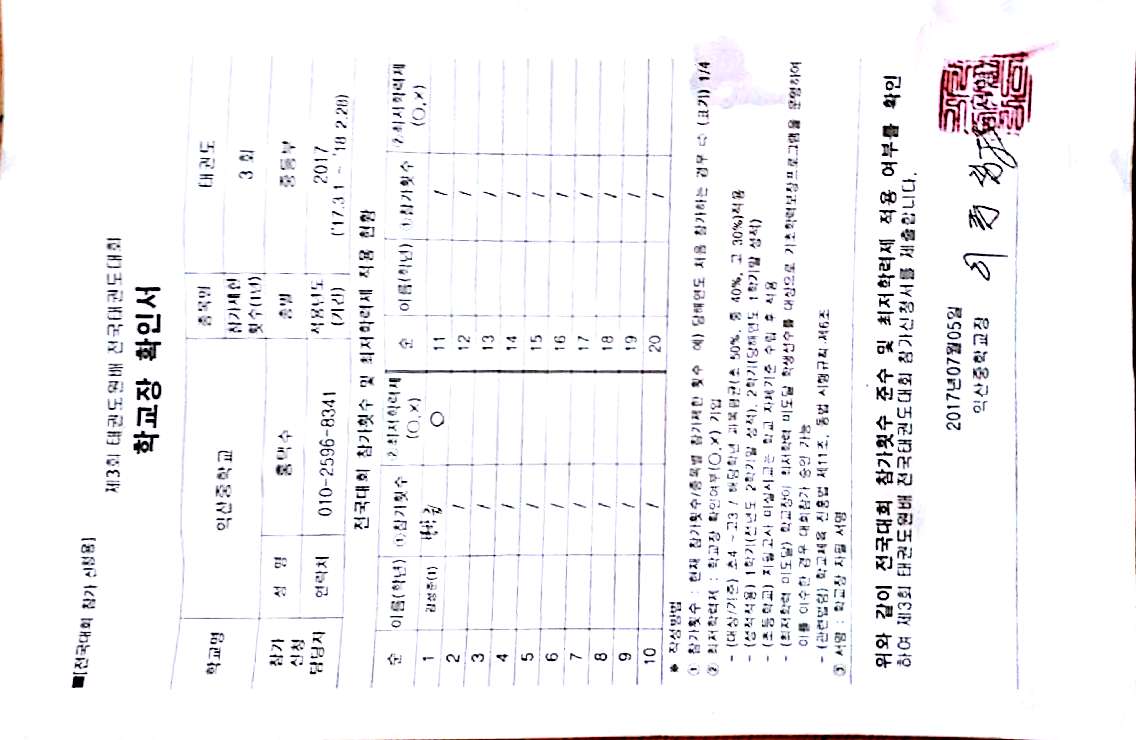 ■[전국대회 참가 신청용]
제3회 태권도원배 전국태권도대회
학교장 확인서
학교명 익산중학교 종목명 태권도
참가 신청 담당자 성 명 홍택수 참가제한 횟수(1년) 3 회
종별 중등부
연락처 010-2596-8341 적용년도 (기간) 2017 ('17.3.1 ~ '18.2.28)
전국대회 참가횟수 및 최저학력제 적용 현황
순 이름(학년) ①참가횟수 ②최저학력제 (○,×) 순 이름(학년) ①참가횟수 ②최저학력제 (○,×)
1 김성준(1) ○ 11 /
2 / 12 /
3 / 13 /
4 / 14 /
5 / 15 /
6 / 16 /
7 / 17 /
8 / 18 /
9 / 19 /
10 / 20 /
※ 작성방법
① 참가횟수 : 현재 참가횟수/종목별 참가제한 횟수 예) 당해연도 처음 참가하는 경우 ⇨ (표기) 1/4
② 최저학력제 : 학교장 확인여부(○,×) 기입
- (대상/기준) 초4 ~ 고3 / 해당학년 과목평균(초 50%, 중 40%, 고 30%)적용
- (성적적용) 1학기(전년도 2학기말 성적), 2학기(당해연도 1학기말 성적)
- (초등학교) 지필고사 미실시교는 학교 자체기준 수립 후 적용
- (최저학력 미도달) 학교장이 최저학력 미도달 학생선수를 대상으로 기초학력보장프로그램을 운영하여
이를 이수한 경우 대회참가 승인 가능
- (관련법령) 학교체육 진흥법 제11조, 동법 시행규칙 제6조
③ 서명 : 학교장 자필 서명
위와 같이 전국대회 참가횟수 준수 및 최저학력제 적용 여부를 확인
하여 제3회 태권도원배 전국태권도대회 참가신청서를 제출합니다.
2017년07월05일
익산중학교장